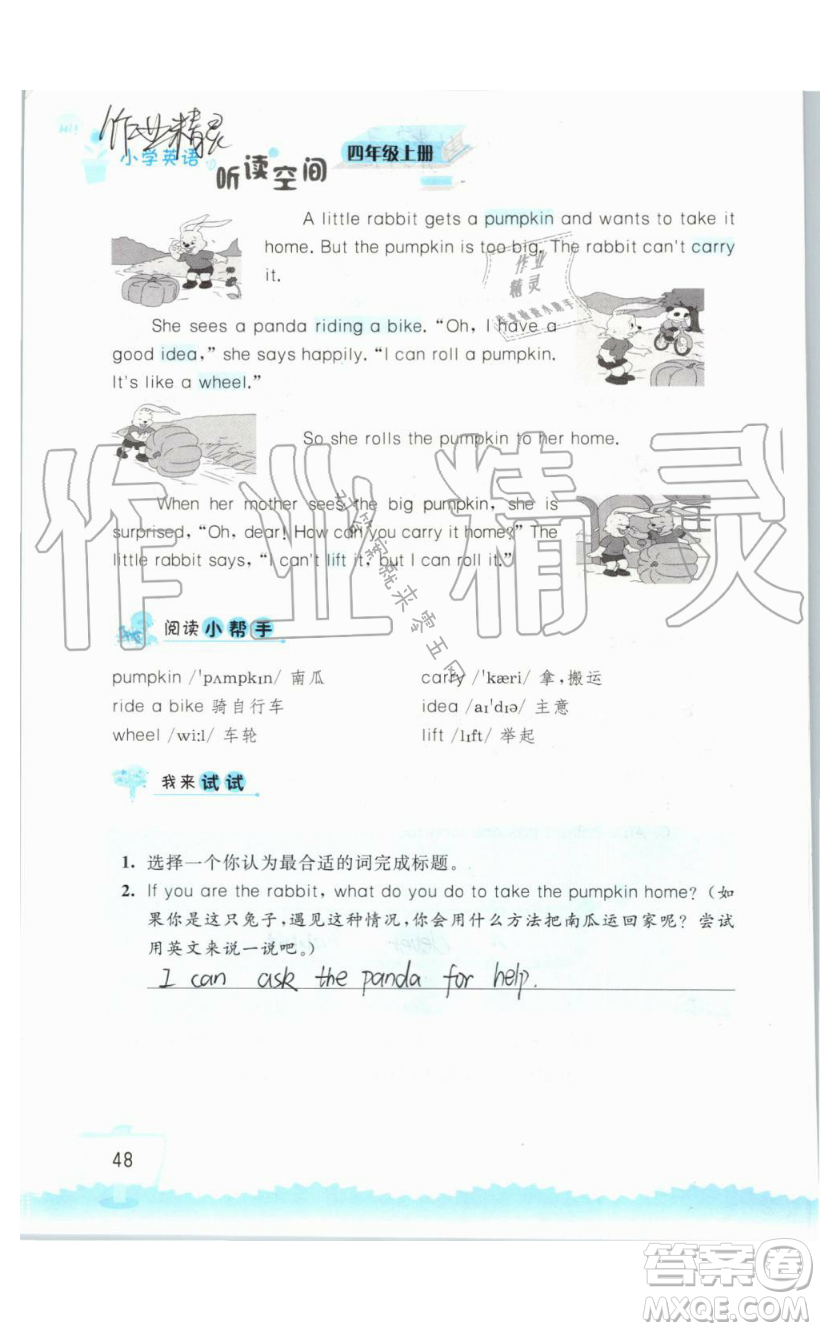 Hi!
作业精灵
小学英语
听读空间
四年级上册
A little rabbit gets a pumpkin and wants to take it
home. But the pumpkin is too big. The rabbit can't carry
it.
作业
精灵
She sees a panda riding a bike. “Oh, I have a
good idea,” she says happily. “I can roll a pumpkin.
It's like a wheel.”
So she rolls the pumpkin to her home.
作业精灵
When her mother sees the big pumpkin, she is
surprised, “Oh, dear! How can you carry it home?” The
little rabbit says, “I can't lift it, but I can roll it.”
找答案就来零五网
阅读小帮手
pumpkin /ˈpʌmpkɪn/ 南瓜
carry /ˈkæri/ 拿,搬运
ride a bike 骑自行车
idea /aɪˈdɪə/ 主意
wheel /wiːl/ 车轮
lift /lɪft/ 举起
我来试试
1. 选择一个你认为最合适的词完成标题。
2. If you are the rabbit, what do you do to take the pumpkin home? (如
果你是这只兔子,遇见这种情况,你会用什么方法把南瓜运回家呢? 尝试
用英文来说一说吧。)
I can ask the panda for help.
48
答案卷
MXQE.COM